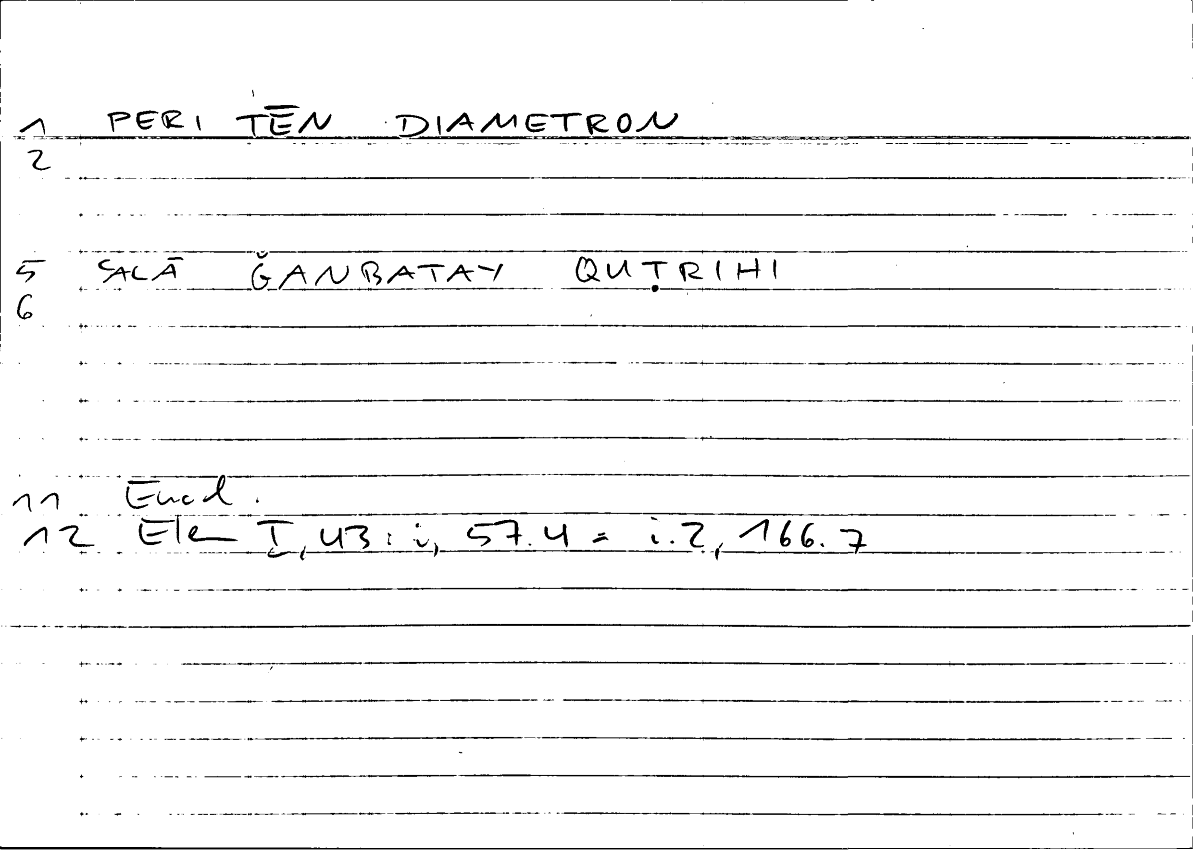 1 PERI TĒN DIAMETRON
2
5 ʿALĀ ǦANBATAY QUṬRIHI
6
11 Eucl.
12 Elem I, 43 : i, 57.4 = i.2, 166.7